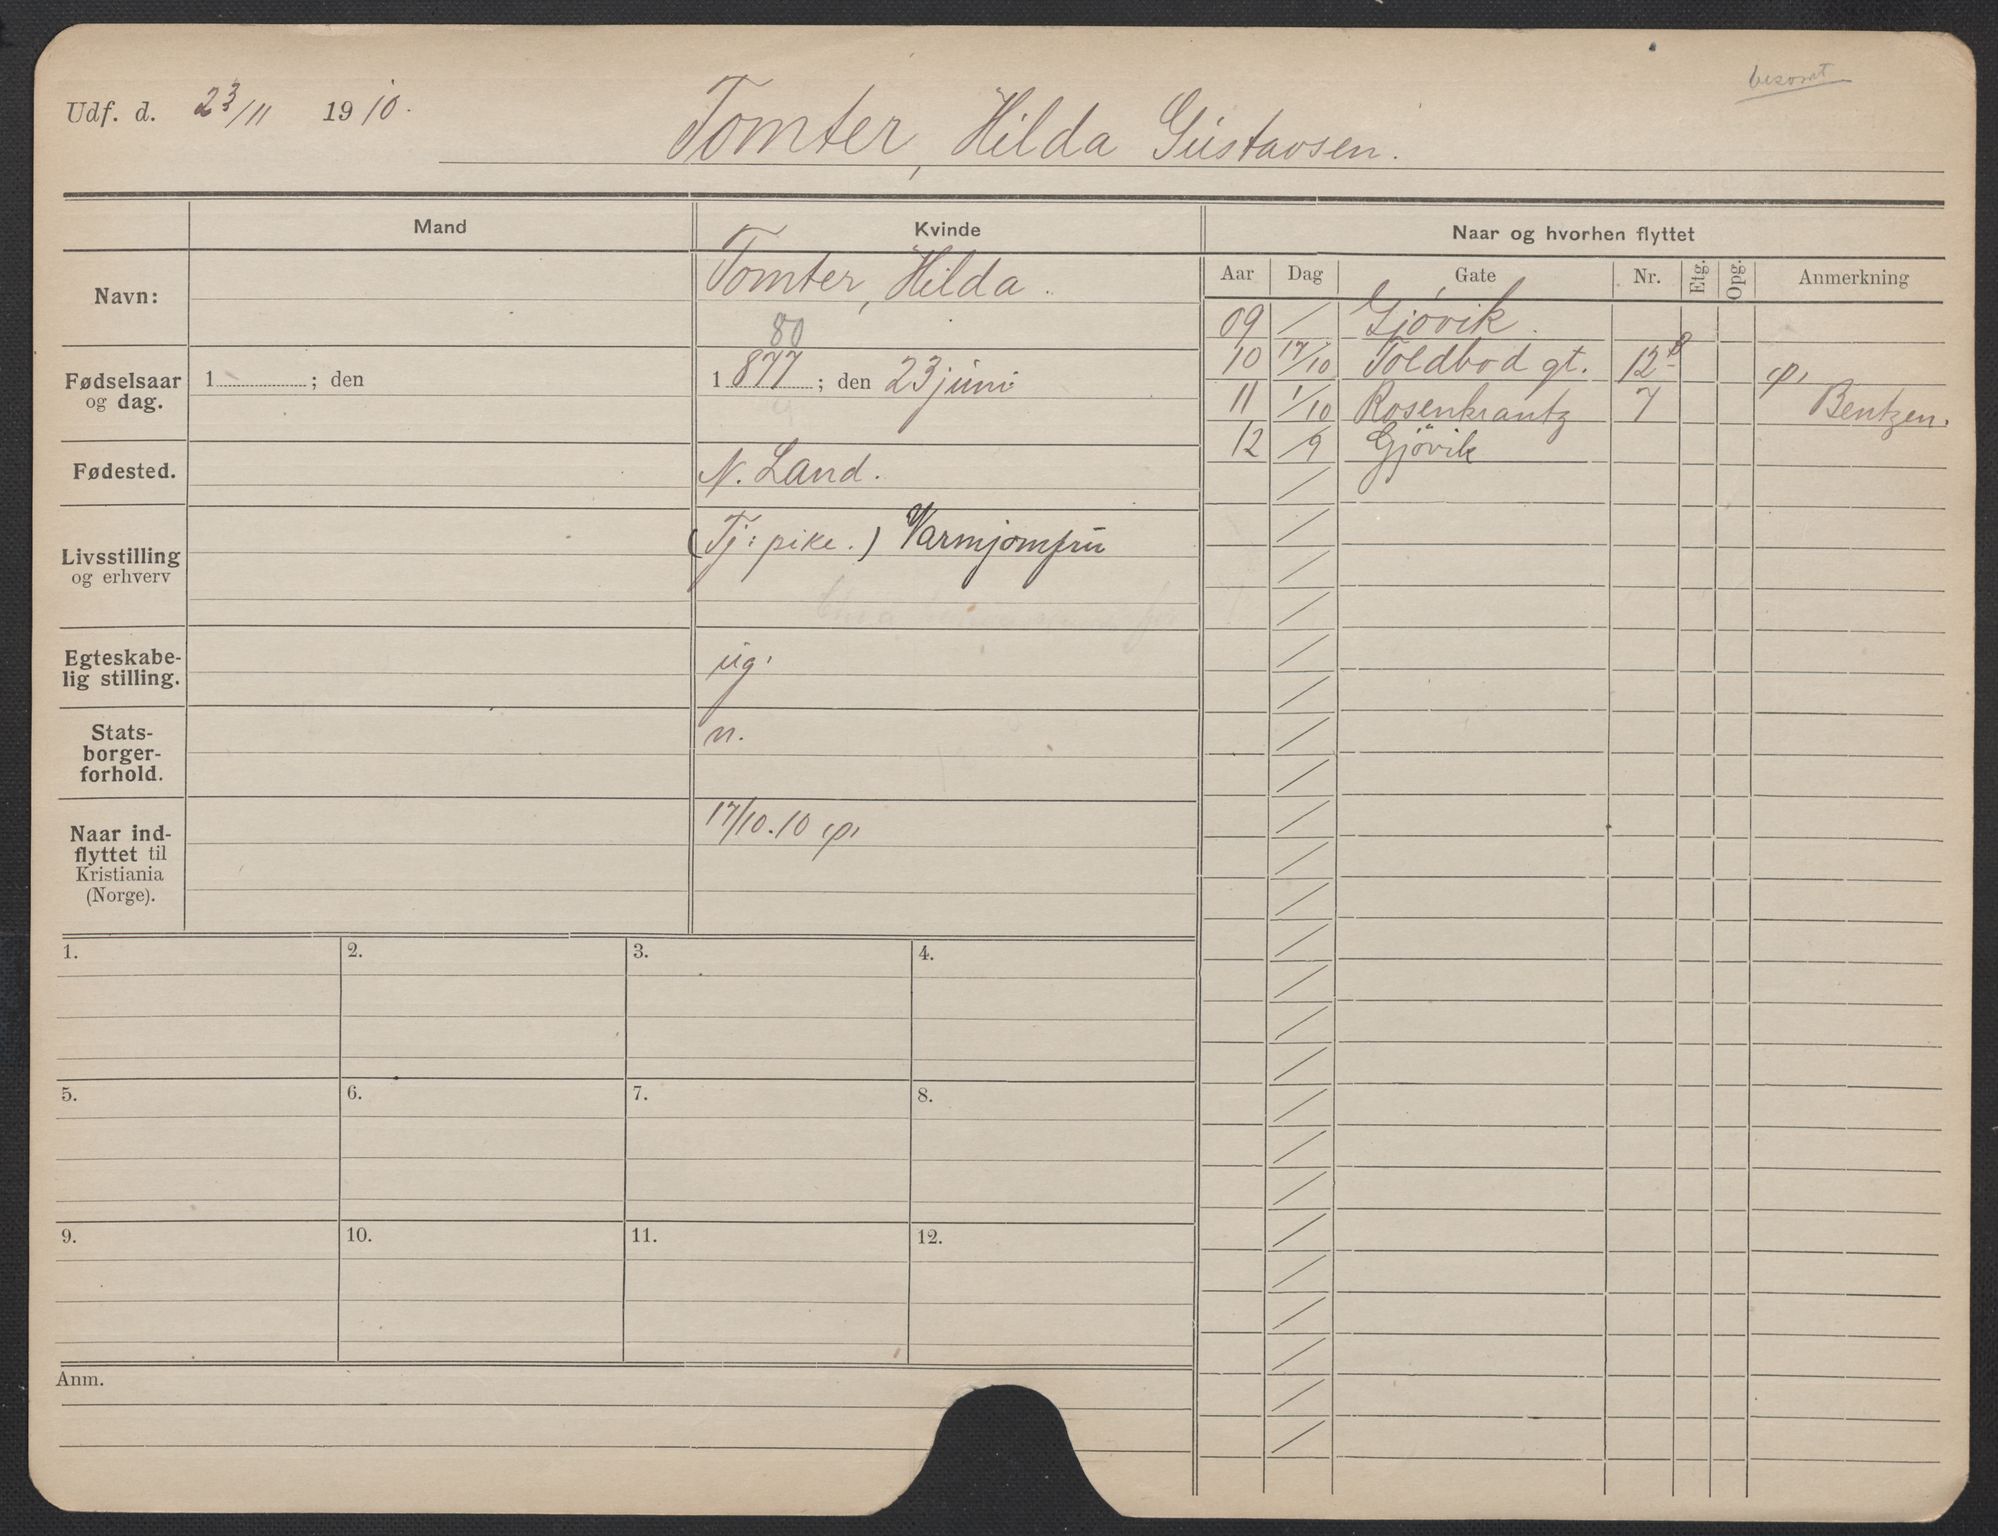 Udf. d. 23/11 1910.
Tomter, Hilda Gustavsen.
Mand
Kvinde
Navn:
Tomter, Hilda.
80
Fødselsaar og dag.
1 ; den
1877 ; den 23 juni
Fødested.
N. Land.
Livsstilling og erhverv
(Tj: pike.) Varmjomfru
Egteskabe-
lig stilling.
ug.
Stats-
borger-
forhold.
n.
Naar ind-
flyttet til
Kristiania
(Norge).
17/10.10
Naar og hvorhen flyttet
Aar Dag Gate Nr. Etg. Opg. Anmerkning
09 / Gjøvik.
10 17/10 Toldbod gt. 12 B
11 1/10 Rosenkrantz 7 Bentzen.
12 /9 Gjøvik
1. 2. 3. 4.
5. 6. 7. 8.
9. 10. 11. 12.
Anm.